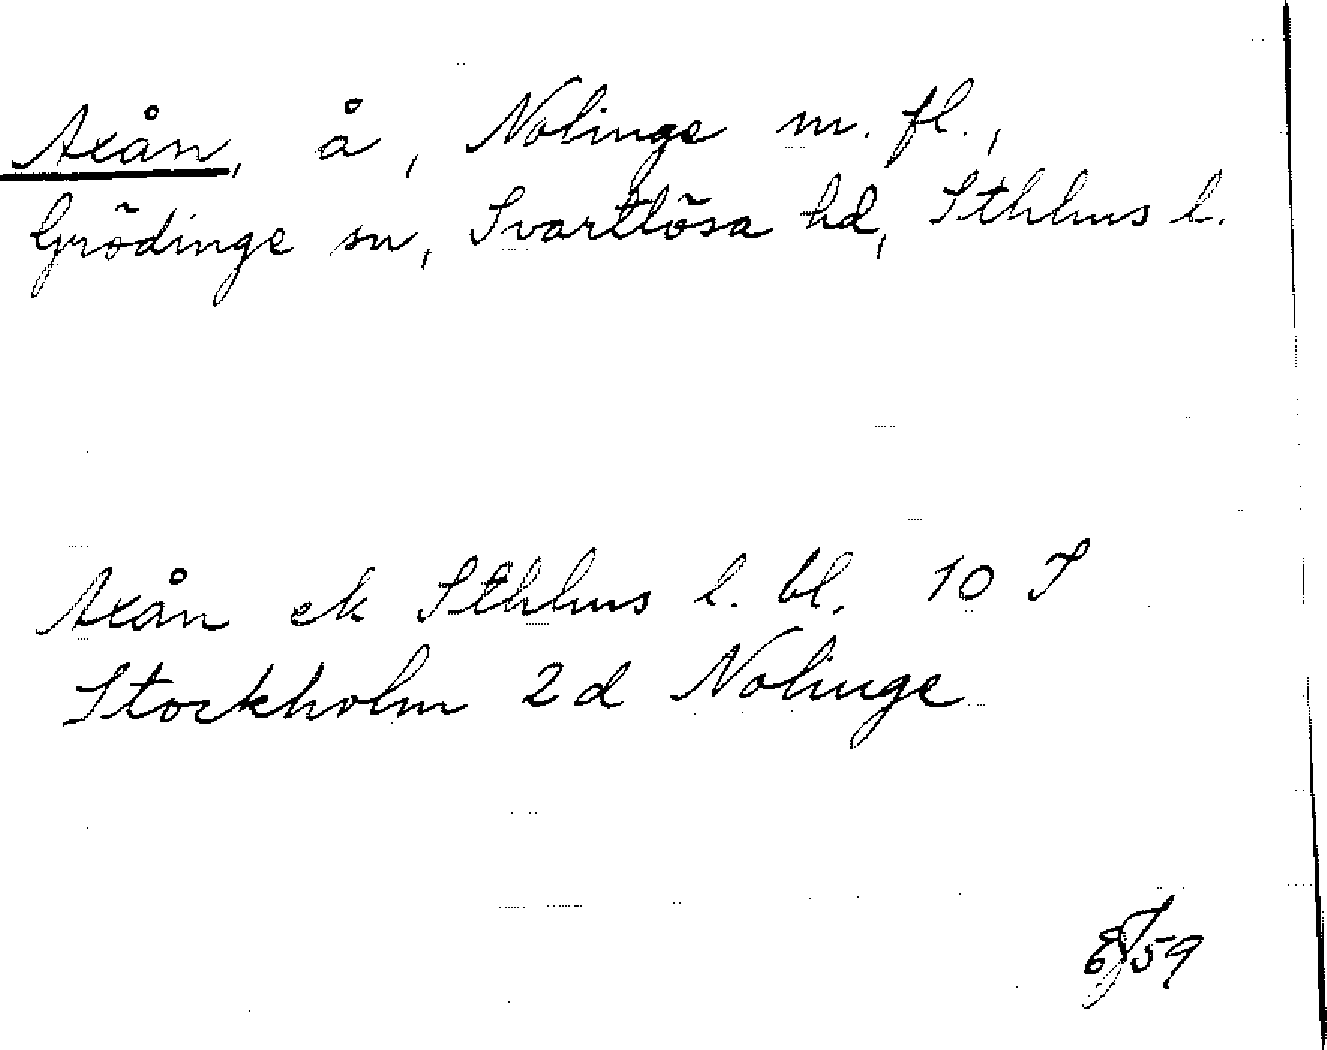 Axån, å, Nolinge m. fl.,
Grödinge sn, Svartlösa hd, Sthlms l.
Axån ek Sthlms l. bl. 10 I
Stockholm 2d Nolinge